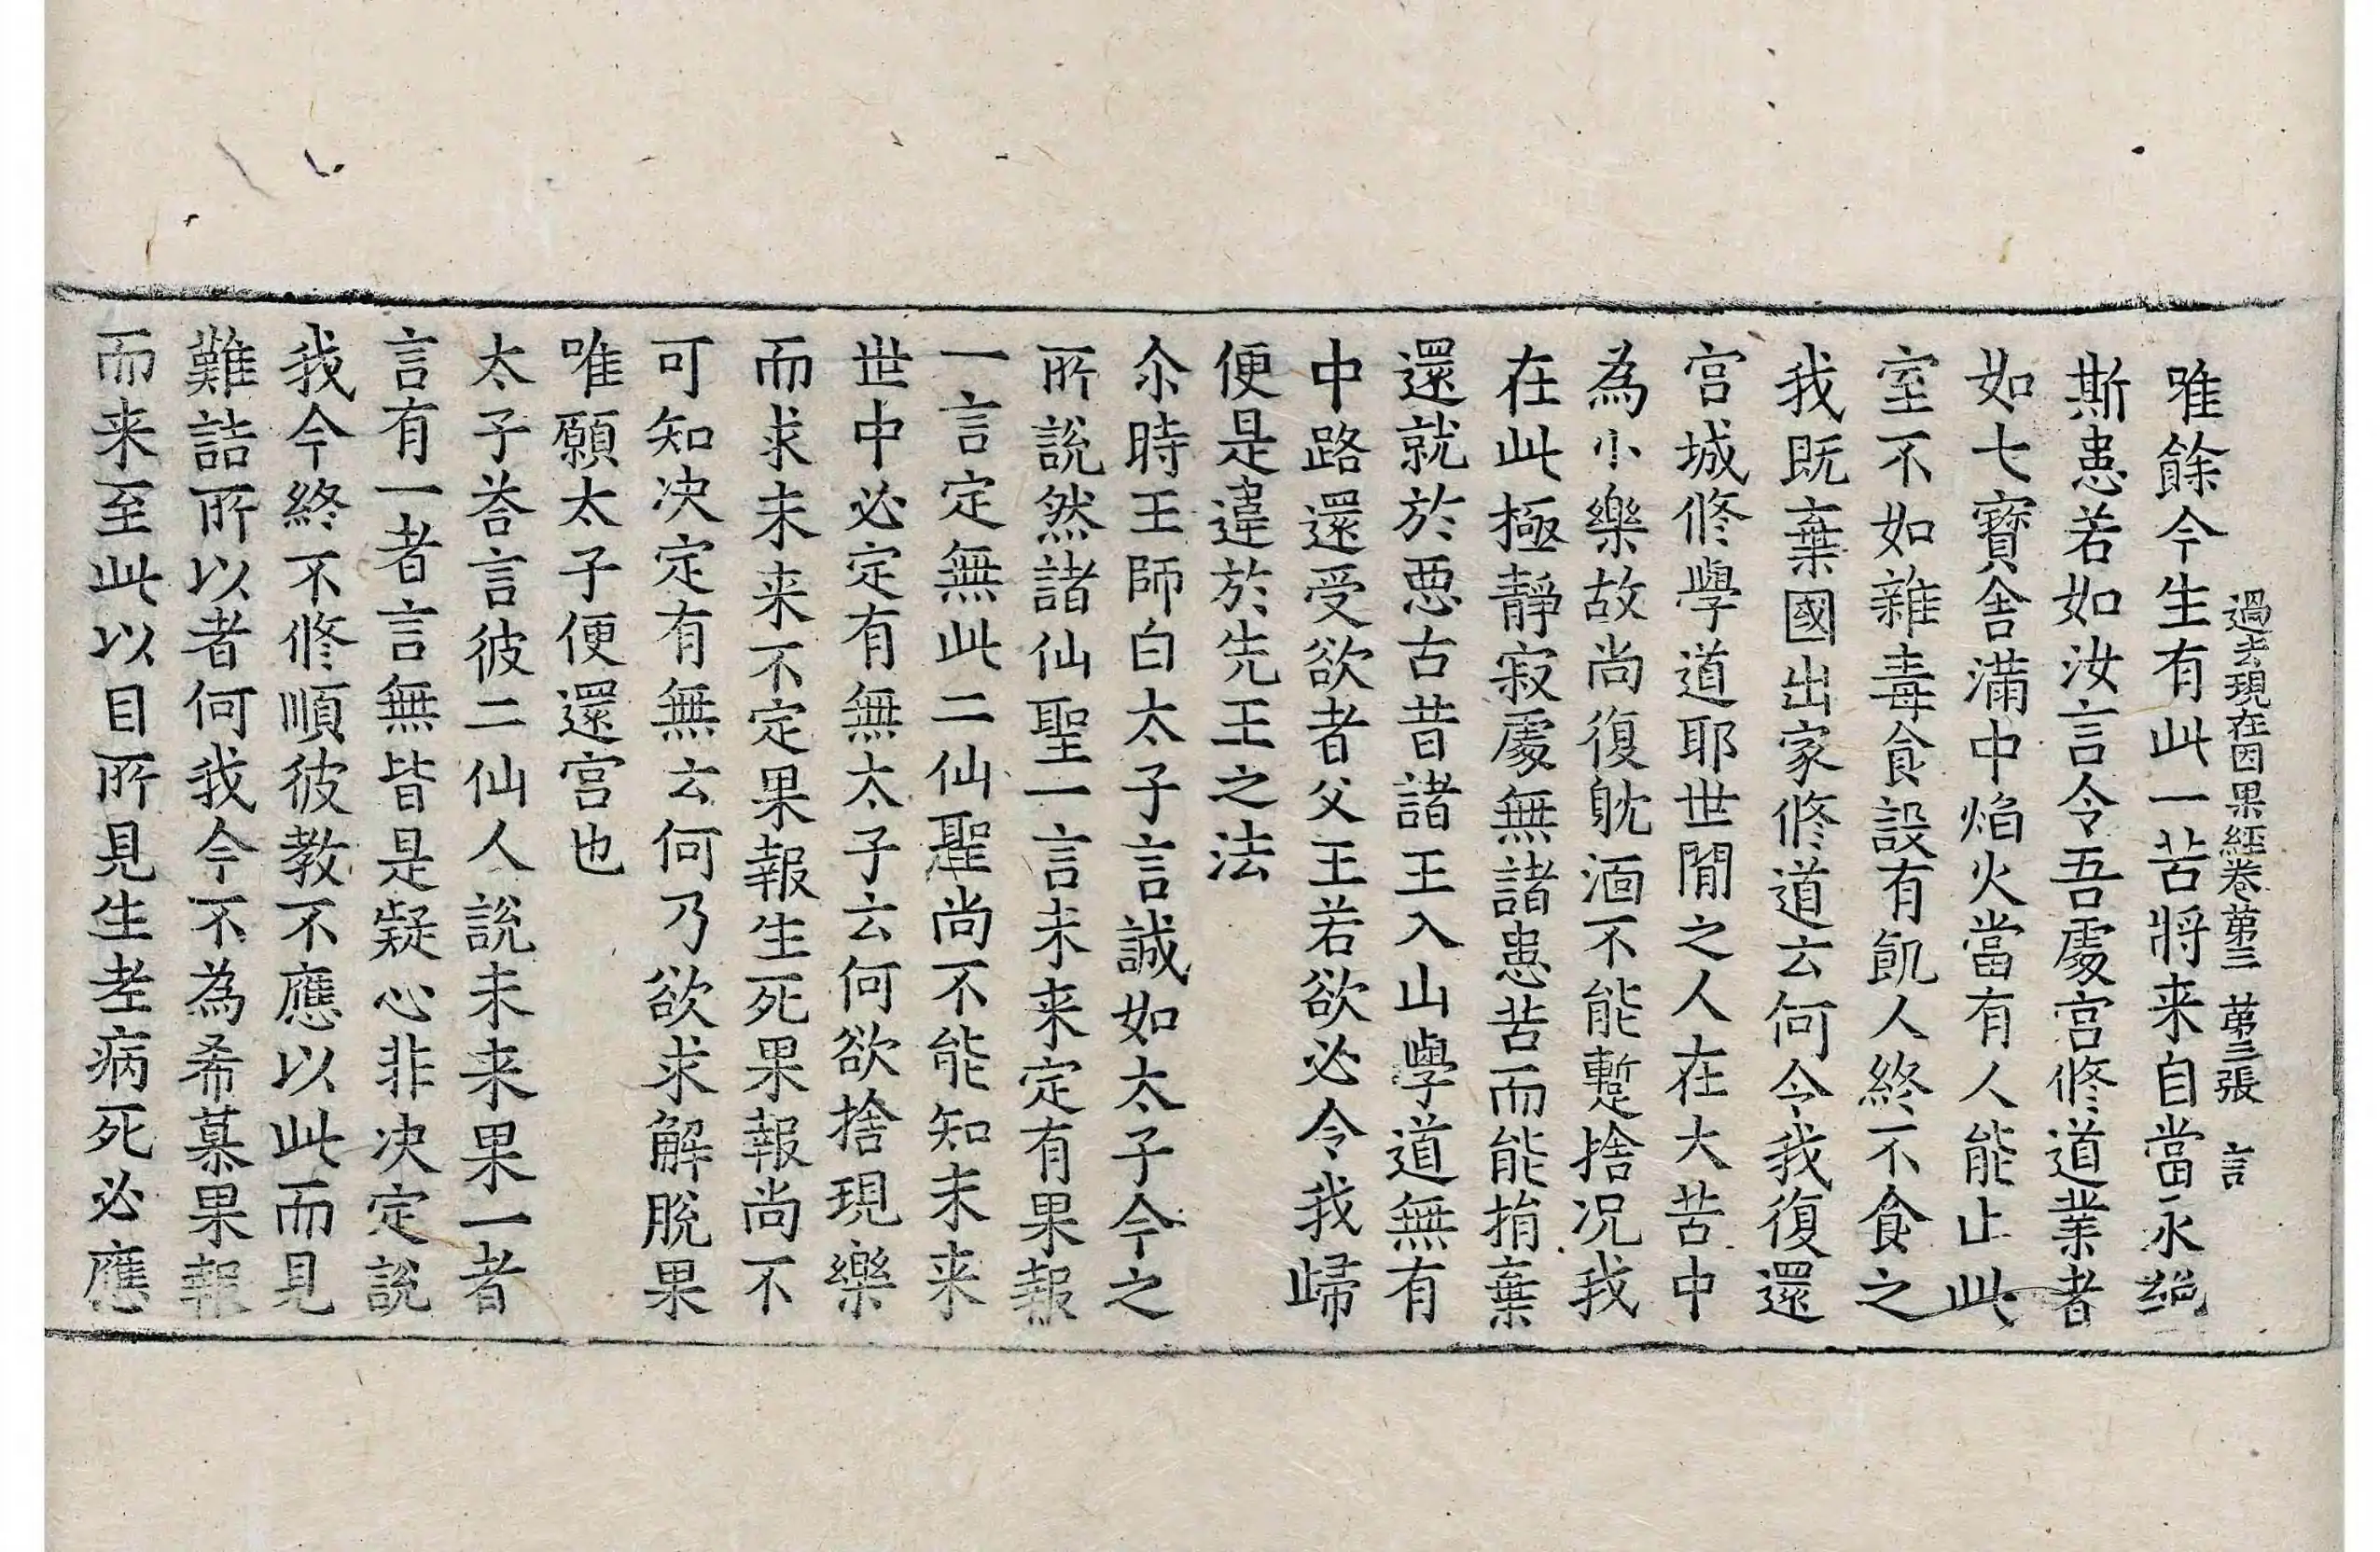 過去現在因果經卷第三 第三張 言
唯餘今生有此一苦將来自當永絕
斯患若如汝言令吾處宫修道業者
如七寶舍滿中焰火當有人能止此
室不如雜毒食設有飢人終不食之
我既棄國出家修道云何令我復還
宫城修學道耶世間之人在大苦中
為小樂故尚復躭湎不能蹔捨况我
在此極靜寂處無諸患苦而能捐棄
還就於惡古昔諸王入山學道無有
中路還受欲者父王若欲必令我歸
便是違於先王之法
尒時王師白太子言誠如太子今之
所說然諸仙聖一言未来定有果報
一言定無此二仙聖尚不能知未来
世中必定有無太子云何欲捨現樂
而求未来不定果報生死果報尚不
可知决定有無云何乃欲求解脫果
唯願太子便還宫也
太子荅言彼二仙人說未来果一者
言有一者言無皆是疑心非决定說
我今終不修順彼教不應以此而見
難詰所以者何我今不為希慕果報
而来至此以目所見生老病死必應